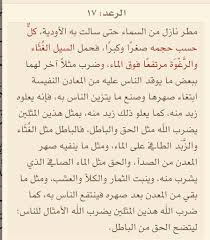 الرعد: ١٧
مطر نازل من السماء حتى سالت به الأودية، كلٌّ
حسب حجمه صغرًا وكبرًا، فحمل السيل الغُثَاء
والرَّغْوَة مرتفعًا فوق الماء، وضرب مثلًا آخر لهما
ببعض ما يوقد الناس عليه من المعادن النفيسة
ابتغاء صهرها وصنع ما يتزين الناس به، فإنه يعلوه
زبد منه، كما يعلو ذلك زبد منه، بمثل هذين المثلين
يضرب الله مثل الحق والباطل، فالباطل مثل الغُثَاء
والزَّبد الطافي على الماء، ومثل ما ينفيه صهر
المعدن من الصدأ، والحق مثل الماء الصافي الذي
يشرب منه، وينبت الثمار والكلأ والعشب، ومثل ما
بقي من المعدن بعد صهره فينتفع الناس به، كما
ضرب الله هذين المثلين يضرب الله الأمثال للناس؛
ليتضح الحق من الباطل.